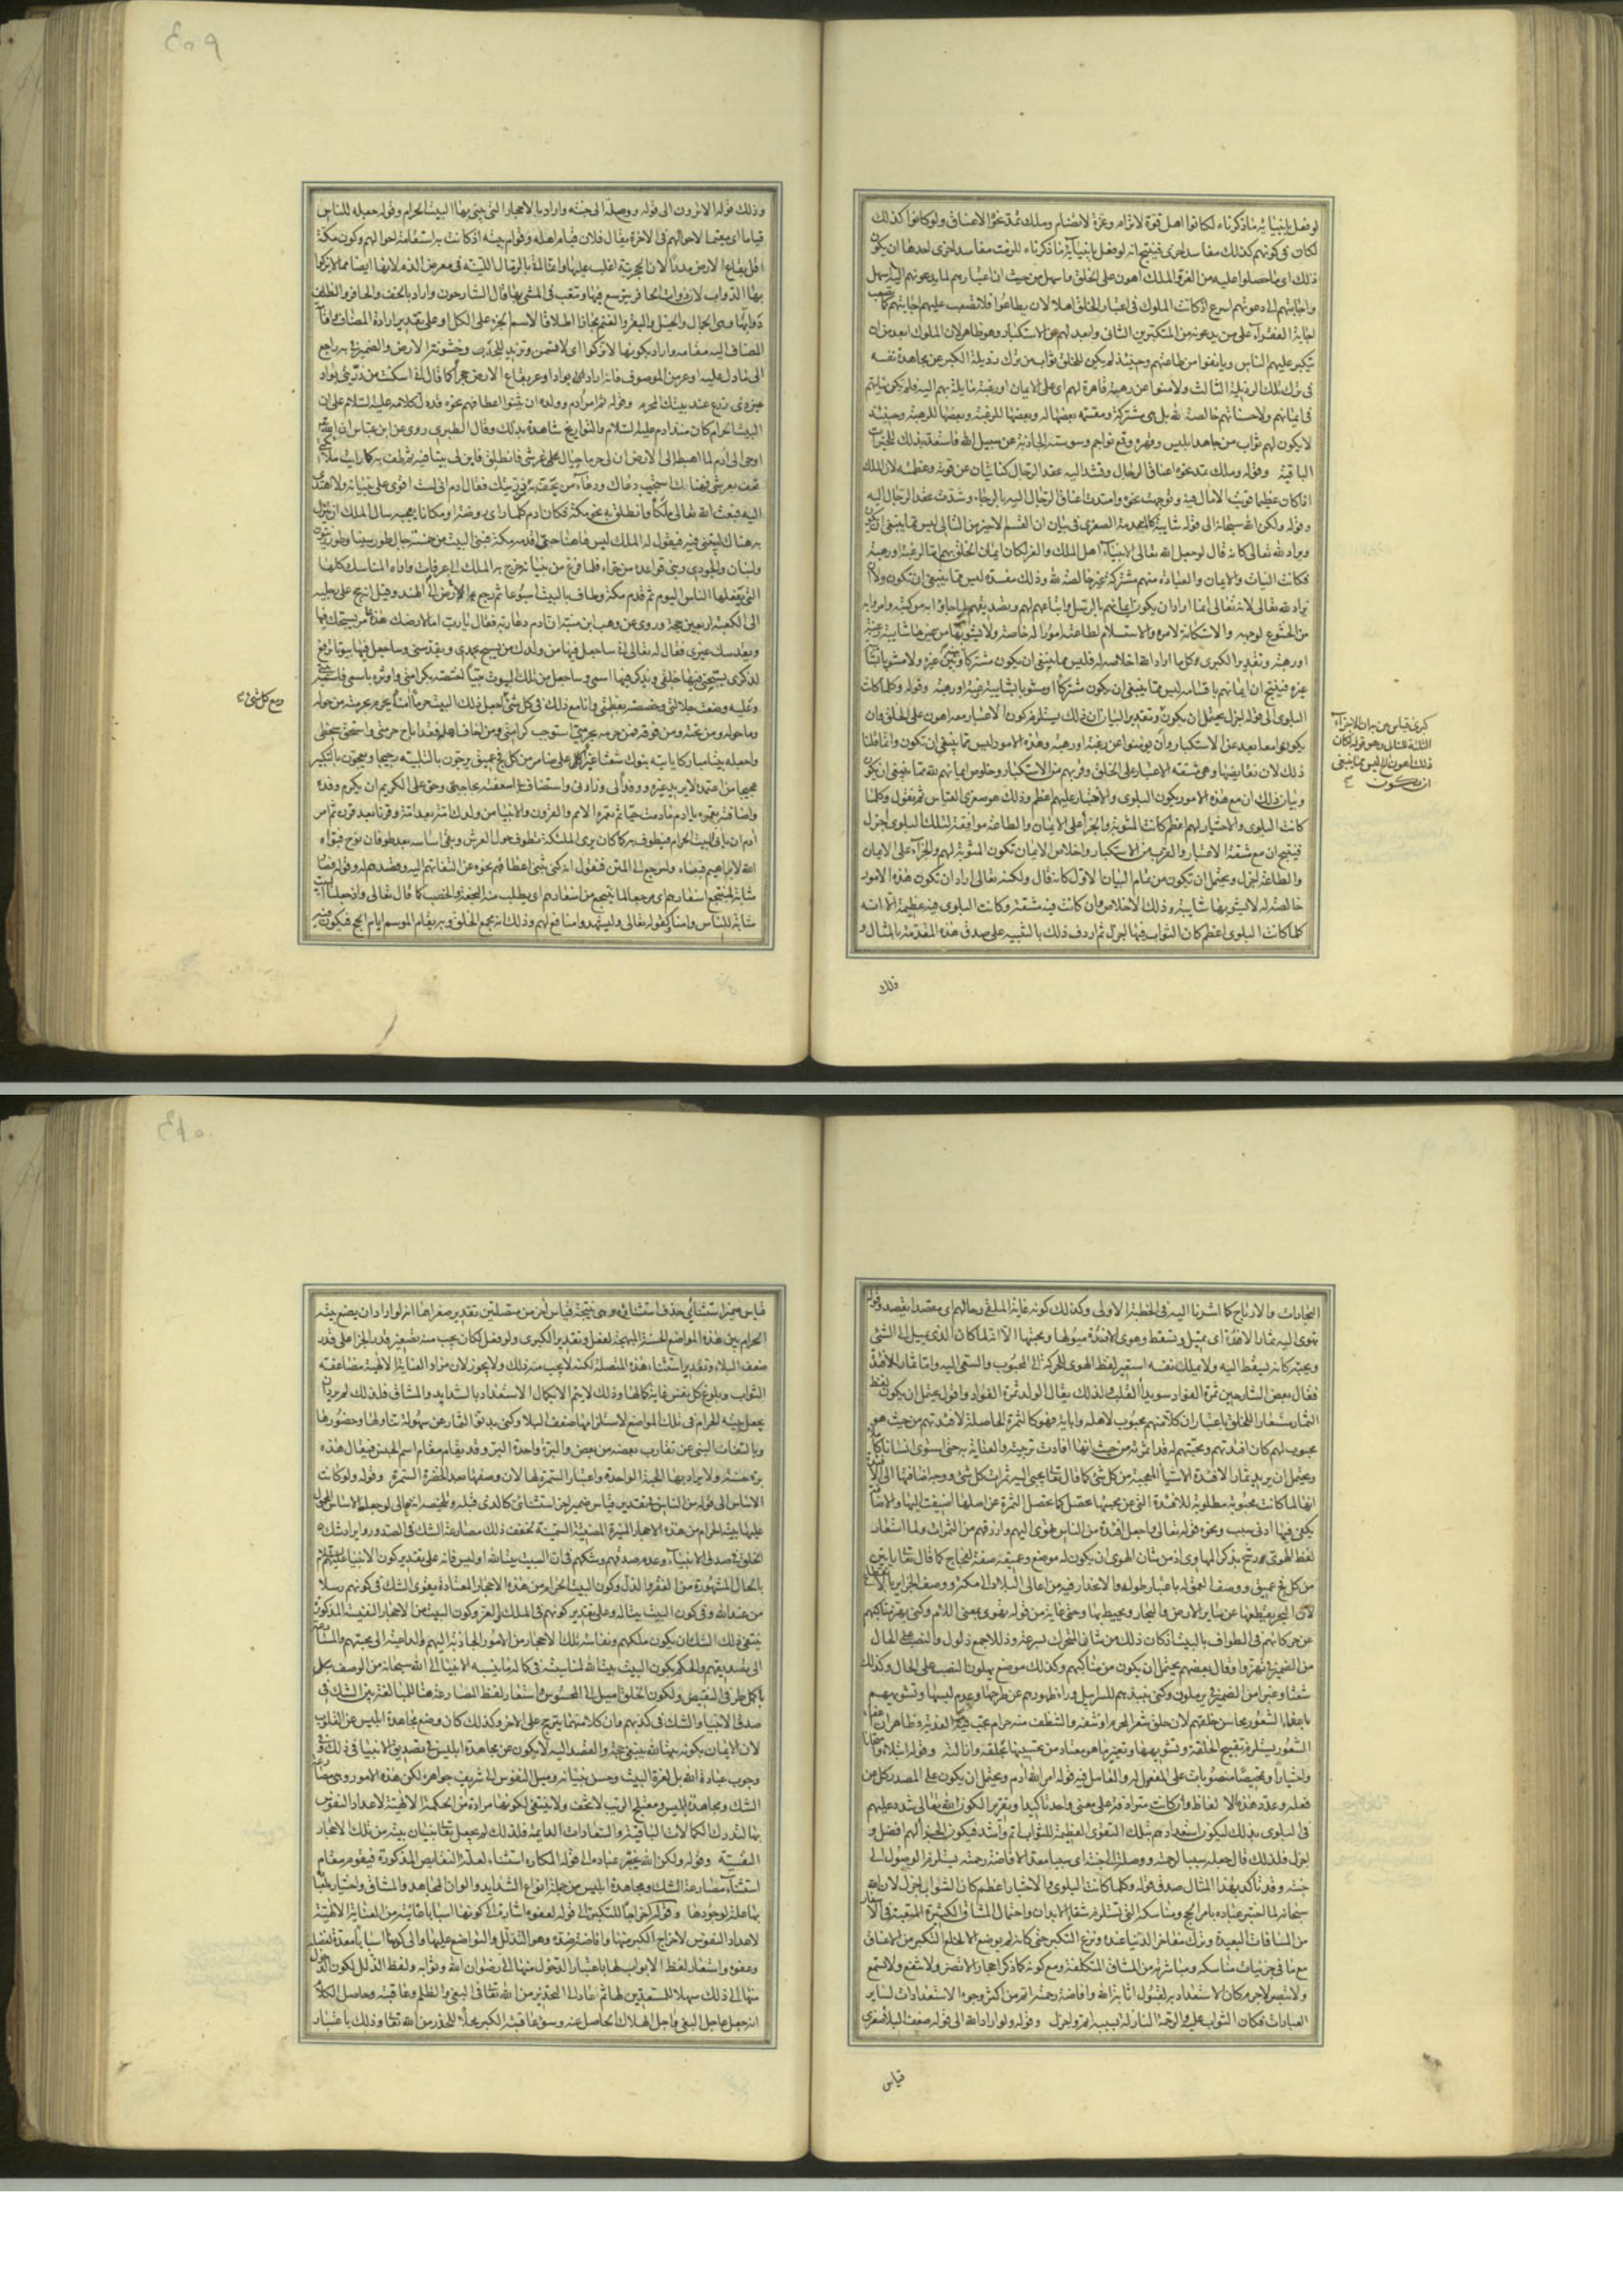 لو فعل بانبيائه ما ذكرناه لكانوا اهل قوة لا ترام وعزة لا تضام وملك تمتد نحوه الاعناق ولو كانوا كذلك
لكان في كونهم كذلك مفاسد اخرى فينتج انه لو فعل بانبيائه ما ذكرناه للزمت مفاسد اخرى احدها ان يكون
ذلك اي ما حصلوا عليه من العز والملك اهون على الخلق واسهل من حيث ان اعتبارهم لما يدعونهم اليه اسهل
واجابتهم الى دعوتهم اسرع اذ كانت الملوك في اعتبار الخلق اهلا لان يطاعوا فلا تصعب عليهم اجابتهم كما يصعب
اجابة الفقراء على من يدعونه من المتكبرين الثاني وابعد لهم عن الاستكبار وهو ظاهر لان الملوك ابعد من ان
يتكبر عليهم الناس ويانفوا من طاعتهم وحينئذ لم يكن للخلق ثواب من ترك رذيلة الكبر عن مجاهدة نفسه
في ترك تلك الرذيلة الثالث ولآمنوا عن رهبة قاهرة لهم اي على الايمان او رغبة مايلة بهم اليه فلم يكن نياتهم
في ايمانهم ولا حسناتهم خالصة لله بل هي مشتركة ومقتسمة بعضها له وبعضها للرغبة وبعضها للرهبة وحينئذ
لا يكون لهم ثواب من جاهد ابليس وقهره وقمع نواجم وسوسته الجاذبة عن سبيل الله فاستعد بذلك للخيرات
الباقية وقوله وملك تمتد نحوه اعناق الرجال وتشد اليه عقد الرحال كنايتان عن قوته وعظمه لان الملك
اذا كان عظيما قويت الامال فيه وتوجهت نحوه وامتدت اعناق الرجال اليه بالرجاء وشدت عقد الرحال اليه
وقوله ولكن الله سبحانه الى قوله شايبة كالمقدمة الصغرى في بيان ان القسم الاخير من التالي ليس مما ينبغي ان يكون
ومراد لله تعالى كانه قال لو جعل الله تعالى الانبياء اهل الملك والعز لكان ايمان الخلق بهم اما لرغبة او رهبة
فكانت النيات والايمان والعبادة منهم مشتركة غير خالصة لله وذلك مفسدة ليس مما ينبغي ان تكون ولا
مراد لله تعالى لانه تعالى انما اراد ان يكون ايمانهم بالرسل واتباعهم لهم وتصديقهم لما جاؤا به من كتبه وامر وابه
من الخشوع لوجهه والاستكانة لامره والاستسلام لطاعته امورا له خاصة ولا يشوبها من غيرها شايبة رغبة
او رهبة وتقدير الكبرى وكل ما اراد الله اخلاصه له فليس مما ينبغي ان يكون مشتركا
غيره فينتج ان ايمانهم باقسامه ليس مما ينبغي ان يكون مشتركا او مشوبا بشايبة رغبة او رهبة وقوله وكلما كانت
البلوى الى قوله اجزل يحتمل ان يكون وتقدير البيان ان ذلك يستلزم كون الاعتبار معه اهون على الخلق وان
يكونوا معه ابعد عن الاستكبار وان يؤمنوا عن رغبة او رهبة وهذه الامور ليس مما ينبغي ان تكون وانما قلنا
ذلك لان نقايضها وهي مشقة الاعتبار على الخلق وقربهم من الاستكبار وخلوص ايمانهم لله مما ينبغي ان تكون
وبيان ذلك ان مع هذه الامور يكون البلوى والاختبار عليهم اعظم وذلك هو صغرى القياس ثم نقول وكلما
كانت البلوى والاختبار لهم اعظم كانت المثوبة والجزاء على الايمان والطاعة موافقة لتلك البلوى اجزل
فينتج ان مع مشقة الاعتبار والقرب من الاستكبار واخلاص الايمان تكون المثوبة لهم والجزاء على الايمان
والطاعة اجزل ويحتمل ان يكون من تمام البيان الاول كانه قال ولكنه تعالى اراد ان تكون هذه الامور
خالصة له لا يشوبها شايبة وذلك الاخلاص وان كانت فيه مشقة وكانت البلوى فيه عظيمة الا انه
كلما كانت البلوى اعظم كان الثواب فيها اجزل ثم اردف ذلك بالتنبيه على صدق هذه المقدمة بالمثال و
وذلك
كبرى قياس من بيان
الثلثة للتالي وهو قوله لكان
ذلك اهون الخ ليس مما ينبغي
ان يكون
٤٥٩
وذلك قوله الا ترون الى قوله ووصلة الى جنته واراد بالاحجار التي بنى بها البيت الحرام وقوله جعله للناس
قياما اي مقيما لاحوالهم في الاخرة يقال فلان قيام اهله وقوام بيته اذ كانت به استقامة احوالهم وكون مكة
اقل بقاع الارض مدرا لان الحجرية اغلب عليها وانما اتى بالرمال اللينة في معرض الذم لانها ايضا مما لا يزكوا
بها الدواب لان ذوات الحافر يرسغ فيها وتتعب في المشي بها قال الشارحون واراد بالخف والحافر والظلف
دوابها وهي الجمال والخيل والبقر والغنم مجازا اطلاقا لاسم الجزء على الكل او على تقدير ارادة المضاف واقامة
المضاف اليه مقامه واراد بكونها لا تزكوا اي لا تسمن وتزيد للجدب وخشونة الارض والضمير في به راجع
الى ما دل عليه اوعر من الموصوف فانه اراد بواد اوعر بقاع الارض حجرا كما قال اني اسكنت من ذريتي بواد
غير ذي زرع عند بيتك المحرم وقوله ثم امر آدم وولده ان يثنوا اعطافهم نحوه قد دل كلامه عليه السلام على ان
البيت الحرام كان منذ آدم عليه السلام والتواريخ شاهدة بذلك وقال الطبري روى عن ابن عباس ان الله
اوحى الى آدم لما اهبط الى الارض ان لي حرما حيال عرشي فانطلق فابن لي بيتا فيه ثم طف به كما رايت ملائكتي
تحف بعرشي فهناك استجيب دعاك ودعاء من يحف به من ذريتك فقال آدم اني لست اقوى على بنيانه ولا اهتدي
اليه فبعث الله تعالى ملكا فانطلق به نحو مكة فكان آدم كلما راى روضة او مكانا يعجبه سال الملك ان ينزل
به هناك ليبني فيه فيقول له الملك ليس هاهنا حتى اقدمه مكة فبنى البيت من خمسة جبال طور سينا وطور زيتون
ولبنان والجودي وبنى قواعده من حراء فلما فرغ من بنيانه خرج به الملك الى عرفات واراه المناسك كلها
التي يفعلها الناس اليوم ثم قدم مكة وطاف بالبيت اسبوعا ثم رجع الى ارض الهند وقيل انه حج على رجليه
الى الكعبة اربعين حجة وروى عن وهب ابن منبه ان آدم دعا ربه فقال يا رب اما لارضك هذه عامر يسبحك فيها
ويقدسك غيري فقال له تعالى اني ساجعل فيها من ولدك من يسبح بحمدي ويقدسني وساجعل فيها بيوتا ترفع
لذكري يسبحني فيها خلقي ويذكر فيها اسمي وساجعل من تلك البيوت بيتا اختصه بكرامتي واوثره باسمي
وعليه وضعت جلالتي وخصصته بعظمتي وانا مع ذلك في كل شيء اجعل ذلك البيت حرما آمنا يحرم بحرمته من حوله
وما حوله ومن تحته ومن فوقه فمن حرمه بحرمتي استوجب كرامتي ومن اخاف اهله فقد اباح حرمتي واستحق سخطي
واجعله بيتا مباركا ياتيه بنوك شعثا غبرا على كل ضامر من كل فج عميق يرجون بالتلبية رجيجا ويعجون بالتكبير
عجيجا من اعتمده لا يريد غيره ووفد الي وزارني واستضاف بي اسعفته بحاجته وحق على الكريم ان يكرم وفده
واضيافه تعمره يا آدم ما دمت حيا ثم تعمره الامم والقرون والانبيا من ولدك امة بعد امة وقرنا بعد قرن ثم امر
آدم ان ياتي البيت الحرام فيطوف به كما كان يرى الملئكة تطوف حول العرش وبقى اساسه بعد طوفان نوح فبوأه
الله لابراهيم فبناه ولنرجع الى المتن فنقول انه كنى بثنى اعطافهم نحوه عن التفاتهم اليه وقصدهم له وقوله فصار
مثابة لمنتجع اسفارهم اي مرجعا لما ينتجع من اسفارهم اي يطلب منه النجعة والخصب كما قال تعالى واذ جعلنا البيت
مثابة للناس وامنا وكقوله تعالى وليشهدوا منافع لهم وذلك انه مجمع الخلق وبه يقام الموسم ايام الحج فيكون فيه
التجارات والارباح كما اشرنا اليه في الخطبة الاولى وكذلك كونه غاية لملقى رحالهم اي مقصدا يقصد وقوله
تهوى اليه ثمار الافئدة اي تميل وتسقط وهوى الافئدة ميولها ومحبتها الا انه لما كان الذي يميل الى الشيء
ويحبه كانه يسقط اليه ولا يملك نفسه استعير لفظ الهوى للحركة الى المحبوب والسعي اليه واما ثمار الافئدة
فقال بعض الشارحين ثمرة الفؤاد سويداء القلب ولذلك يقال للولد ثمرة الفؤاد واقول يحتمل ان يكون لفظ
الثمار مستعارا للخلق باعتبار ان كلا منهم محبوب لاهله وابايه فهو كالثمرة الحاصلة لافئدتهم من حيث هو
محبوب لهم كان افئدتهم ومحبتهم له قد اثمرته من حيث انها افادت تربيته والعناية به حتى استوى انسانا كاملا
ويحتمل ان يريد بثمار الافئدة الاشياء المعجبة من كل شيء كما قال تعالى يجبى اليه ثمرات كل شيء ووجه اضافتها الى الافئدة
انها لما كانت محبوبة مطلوبة للافئدة التي عن محبتها تحصل كما تحصل الثمرة عن اصلها اضيفت اليها والاضافة
يكفي فيها ادنى سبب ونحوه قوله تعالى واجعل افئدة من الناس تهوى اليهم وارزقهم من الثمرات ولما استعار
لفظ الهوى رشح بذكر المهاوي اذ من شان الهوى ان يكون له موضع وعميقة صفة للفجاج كما قال تعالى ياتين
من كل فج عميق ووصف العمق له باعتبار طوله والانحدار فيه من اعالي البلاد الى مكة ووصف الجزاير بالانقطاع
لان البحر يقطعها عن ساير الارض والبحار ويحيط بها وحتى غاية من قوله تهوى وبمعنى اللام وكنى بهز مناكبهم
عن حركاتهم في الطواف بالبيت اذ كان ذلك من شان المتحرك بسرعة وذللا جمع ذلول والنصب على الحال
من الضمير في يهزوا وقال بعضهم يحتمل ان يكون من مناكبهم وكذلك موضع يهلون النصب على الحال وكذلك
شعثا وغبرا من الضمير في يرملون وكنى بنبذهم للسرابيل وراء ظهورهم عن طرحها وعدم لبسها وتشويههم
باعفاء الشعور محاسن خلقهم لان حلق شعر المحرم او نتفه والتنظف منه حرام تجب فيه الفدية وظاهر ان اعفاء
الشعور يستلزم تقبيح الخلقة وتشويهها وتغيير ما هو معتاد من تحسينها بحلقه وازالته وقوله ابتلاء وامتحانا
واختبارا وتمحيصا منصوبات على المفعول له والعامل فيه قوله امر الله آدم ويحتمل ان يكون على المصدر كل من
فعله وعدد هذه الالفاظ وان كانت مترادفة على معنى واحد تاكيدا وتقريرا لكون الله تعالى شدد عليهم
في البلوى بذلك ليكون استعدادهم بتلك القوى العظيمة للثواب اتم واشد فيكون الجزاء لهم افضل و
اجزل فلذلك قال جعله سببا لرحمته ووصلة الى جنته اي سببا معدا لافاضة رحمته يستلزم الوصول الى
جنته وقد تاكد بهذا المثال صدق قوله وكلما كانت البلوى والاختبار اعظم كان الثواب اجزل لان الله
سبحانه لما اختبر عباده بامر الحج ومناسكه التي تستلزم شقاء الابدان واحتمال المشاق الكثيرة المتعبة في الاسفار
من المسافات البعيدة وترك مفاخر الدنيا عنده ونزع التكبر حتى كانه لم يوضع الا لخلع التكبر من الاعناق
مع ما في جزئيات مناسكه ومباشرته من المشاق المتكلفة ومع كونه كما ذكر احجارا لا تضر ولا تنفع ولا تسمع
ولا تبصر لا جرم كان الاستعداد به لقبول اثار الله وافاضة رحمته اتم من اكثر وجوه الاستعدادات لساير
العبادات فكان الثواب عليه والرحمة النازلة بسببه اتم واجزل وقوله ولو اراد الله الى قوله ضعف البلاء صغرى
قياس
٤٦٠
قياس ضمير استثنائي حذف استثنائه وهي نتيجة قياس اخر من متصلتين تقدير صغراهما انه لو اراد ان يضع بيته
الحرام بين هذه المواضع الحسنة المبهجة لفعل وتقدير الكبرى ولو فعل لكان يجب منه تصغير قدر الجزاء على قدر
ضعف البلاء وتقدير استثناء هذه المتصلة لكنه لا يجب منه ذلك ولا يجوز لان مراد العناية الالهية مضاعفة
الثواب وبلوغ كل نفس غاية كمالها وذلك لا يتم الا بكمال الاستعداد بالشدايد والمشاق فلذلك لم يرد ان
يجعل بيته الحرام في تلك المواضع لاستلزامها ضعف البلاء وكنى بدنو الثمار عن سهولة تناولها وحضورها
وبالتفات البنى عن تقارب بعضه من بعض والبرة واحدة البر وقد يقام مقام اسم الجنس فيقال هذه
برة حسنة ولا يراد بها الحبة الواحدة واعتبار السمرة لها لان وصفها بعد الخضرة السمرة وقوله ولو كانت
الاساس الى قوله من الناس في تقدير قياس ضمير اخر استثنائي كالذي قبله وتلخيصه انه تعالى لو جعل الاساس المحمول
عليها بيته الحرام من هذه الاحجار المنيرة المضيئة لخففت ذلك مصارعة الشك في الصدور واراد شك
الخلق في صدق الانبياء وعدم صدقهم وشكهم في ان البيت بيت الله او ليس فانه على تقدير كون الانبياء عليهم السلام
بالحال المشهورة من الفقر والذل وكون البيت الحرام من هذه الاحجار المعتادة يقوى الشك في كونهم رسلا
من عند الله وفي كون البيت بيتا له وعلى تقدير كونهم في الملك والعز وكون البيت من الاحجار النفيسة المذكورة
ينتفي ذلك الشك اذ يكون ملكهم ونفاسة تلك الاحجار من الامور الجاذبة اليهم والداعية الى محبتهم والمسارعة
الى تصديقهم والحكم بكون البيت بيت الله لمناسبته في كماله ما ينسبه الانبيا الى الله سبحانه من الوصف بكل
باكمل طرفي النقيض ولكون الخلق اميل الى المحسوس واستعار لفظ المصارعة هنا للمبالغة بين الشك في
صدق الانبيا والشك في كذبهم فان كلا منهما يترجح على الاخر وكذلك كان وضع مجاهدة ابليس عن القلوب
لان الايمان بكونه بيتا لله ينبغي حجه والقصد اليه لا يكون عن مجاهدة ابليس في تصديق الانبيا في ذلك وفي
وجوب عبادة الله بل لعزة البيت وحسن بنيانه وميل النفوس الى شريف جواهره لكن هذه الامور وهي مصارعة
الشك ومجاهدة ابليس ومعتلج الريب لا تخف ولا تنتفي لكونها مرادة من الحكمة الالهية لاعداد النفوس
بها لتدرك الكمالات الباقية والسعادات الدائمة فلذلك لم يجعل تعالى بنيان بيته من تلك الاحجار
النفيسة وقوله ولكن الله يختبر عباده الى قوله المكاره استثناء لعلة النقايض المذكورة فيقوم مقام
استثناء مصارعة الشك ومجاهدة ابليس من جملة انواع الشدايد والوان المجاهد والمشاق واختيار
بها علة لوجودها وقوله اخراجا للتكبر الى قوله لعفوه اشارة الى كونها اسبابا غائية من العناية الالهية
لاعداد النفوس لاخراج الكبر منها وافاضة ضده وهو التذلل والتواضع عليها والى كونها اسبابا معدة لفضله
وعفوه واستعار لفظ الابواب لها باعتبار الدخول منها الى رضوان الله وثوابه ولفظ الذلل لكون الدخول
منها الى ذلك سهلا للمستعدين لها ثم عاد الى التحذير من الله تعالى في البغي والظلم وعاقبته وحاصل الكلام
انه جعل عاجل البغي واجل الهلاك الحاصل عنه وسوء عاقبة الكبر محلا للحذر من الله تعالى وذلك باعتبار
وسع كل شيء